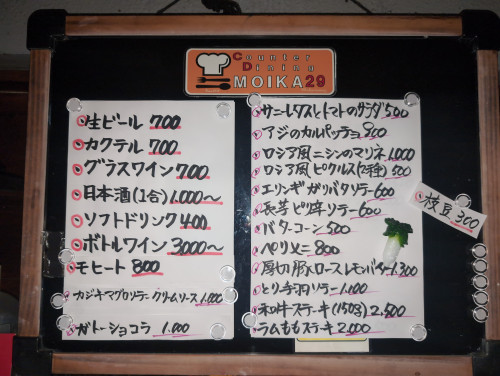 Counter
Dining
MOIKA29
生ビール 700
カクテル 700
グラスワイン 700
日本酒(1合) 1.000〜
ソフトドリンク 400
ボトルワイン 3000〜
モヒート 800
カジキマグロソテークリームソース 1.000
ガトーショコラ 1.000
サニーレタスとトマトのサラダ 500
アジのカルパッチョ 800
ロシア風ニシンのマリネ 1.000
ロシア風ピクルス(2種) 500
エリンギガリバタソテー 600
長芋ピリ辛ソテー 600
バターコーン 500
ペリメニ 800
厚切豚ロースレモンバター 1.300
とり手羽ソテー 1.100
和牛ステーキ(150g) 2.500
ラムももステーキ 2.000
枝豆 300